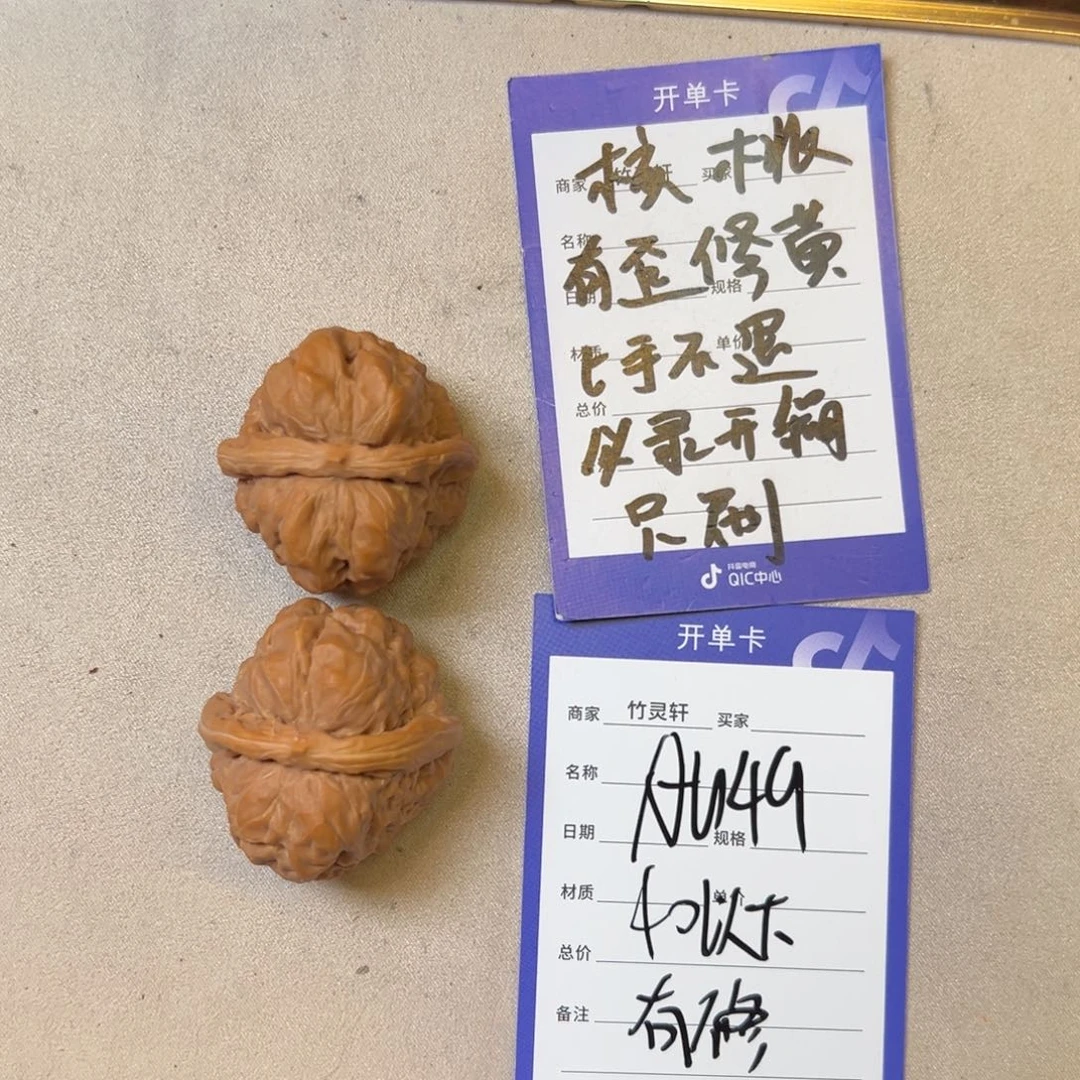 开单卡
核桃
商家 竹灵轩 买家
名称
有歪修黄
日期 规格
材质 单价
上手不退
总价
必录开箱
只刷
抖音电商
QIC中心
开单卡
商家 竹灵轩 买家
名称
AU49
日期 规格
材质 单价
总价
备注
有修